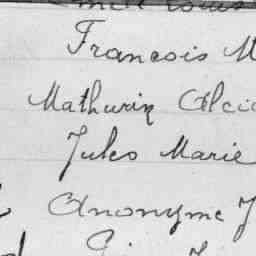 Francois M
Mathurin Alci
Jules Marie
Anonyme J